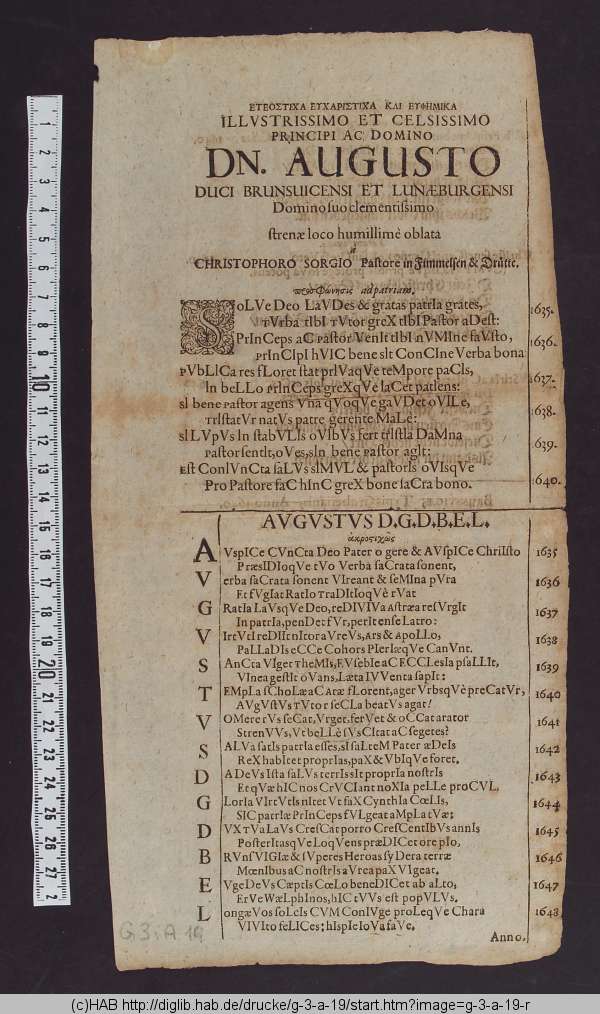 ΕΤΕΟΣΤΙΧΑ ΕΥΧΑΡΙΣΤΙΧΑ ΚΑΙ ΕΥΦΗΜΙΚΑ
ILLVSTRISSIMO ET CELSISSIMO
PRINCIPI AC DOMINO
DN. AUGUSTO
DUCI BRUNSUICENSI ET LUNÆBURGENSI
Domino suo clementissimo
strenæ loco humillimè oblata
à
CHRISTOPHORO SORGIO Pastore in Fimmelsen & Drütte.
προσφώνησις ad patriam.
SoLVe Deo LaVDes & gratas patrIa grates,
TVrba tIbI TVtor greX tIbI Pastor aDest: 1635.
PrInCeps aC Pastor VenIt tIbI nVMIne faVsto,
PrInCIpI hVIC bene sIt ConCIne Verba bona 1636.
PVbLICa res fLoret stat prIVaqVe teMpore paCIs,
In beLLo PrInCeps greXqVe IaCet patIens: 1637.
sI bene Pastor agens Vna qVoqVe gaVDet oVILe,
TrIstatVr natVs patre gerente MaLè: 1638.
sI LVpVs In stabVLIs oVIbVs fert trIstIa DaMna
Pastor sentIt, oVes, sIn bene Pastor agIt: 1639.
Est ConIVnCta saLVs sIMVL & pastorIs oVIsqVe
Pro Pastore faC hInC greX bone saCra bono. 1640.
AVGVSTVS D.G.D.B.E.L.
ἀκροστιχῶς
AVspICe CVnCta Deo Pater o gere & AVspICe ChrIsto 1635
PræsIDIoqVe tVo Verba saCrata sonent,
Verba saCrata sonent VIreant & seMIna pVra 1636
Et fVgIat RatIo TraDItIoqVè rVat
GRatIa LaVsqVe Deo, reDIVIVa Astræa resVrgIt 1637
In patrIa, penDet fVr, perIt ense Latro:
VIrtVtI reDIt nItor aVreVs, Ars & ApoLLo, 1638
PaLLaDIs eCCe Cohors PIerIæqVe CanVnt.
SAnCta VIget TheMIs, EVsebIe aC ECCLesIa psaLLIt, 1639
VInea gestIt oVans, Læta IVVenta sapIt:
TEMpLa sChoLæ aC Aræ fLorent, ager VrbsqVè preCatVr, 1640
AVgVstVs TVtor seCLa beatVs agat!
VOMere rVs seCat, Vrget, ferVet & oCCat arator 1641
StrenVVs, Vt beLLè sVsCItat aC segetes?
SALVa satIs patrIa esses, sI saLteM Pater æDeIs 1642
ReX habItet proprIas, paX & VbIqVe foret.
DADeVs Ista saLVs terrIs sIt proprIa nostrIs 1643
Et qVæ hIC nos CrVCIant noXIa peLLe proCVL.
GLorIa VIrtVtIs nItet Vt faX CynthIa CœLIs, 1644
SIC patrIæ PrInCeps fVLgeat aMpLa tVæ:
DVX TVa LaVs CresCat porro CresCentIbVs annIs 1645
PosterItasqVe LoqVens præDICet ore pIo,
BRVnsVIGIæ & sVperes Heroas syDera terræ 1646
MœnIbus aC nostrIs aVrea paX VIgeat.
EVge DeVs Cæptis CœLo beneDICet ab aLto, 1647
ErVe WæLphInos, hIC tVVs est popVLVs.
LongæVos soLeIs CVM ConIVge proLeqVe Chara 1648
VIVIto feLICes: hIspIe IoVa faVe.
Anno.
G 3: A 19
(c)HAB http://diglib.hab.de/drucke/g-3-a-19/start.htm?image=g-3-a-19-r